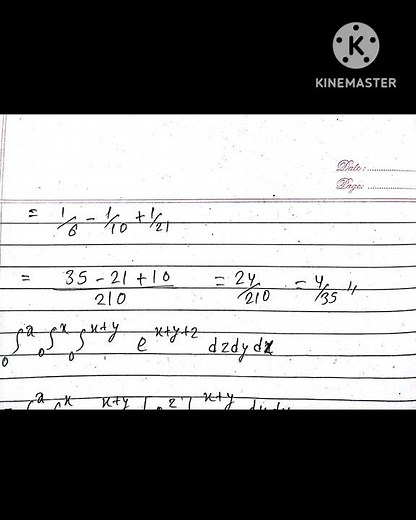 KINEMASTER
Date:
Page:
= 1/6 - 1/10 + 1/21
= 35 - 21 + 10 / 210 = 24/210 = 4/35 "
0∫a 0∫x 0∫x+y e^x+y+z dzdydx